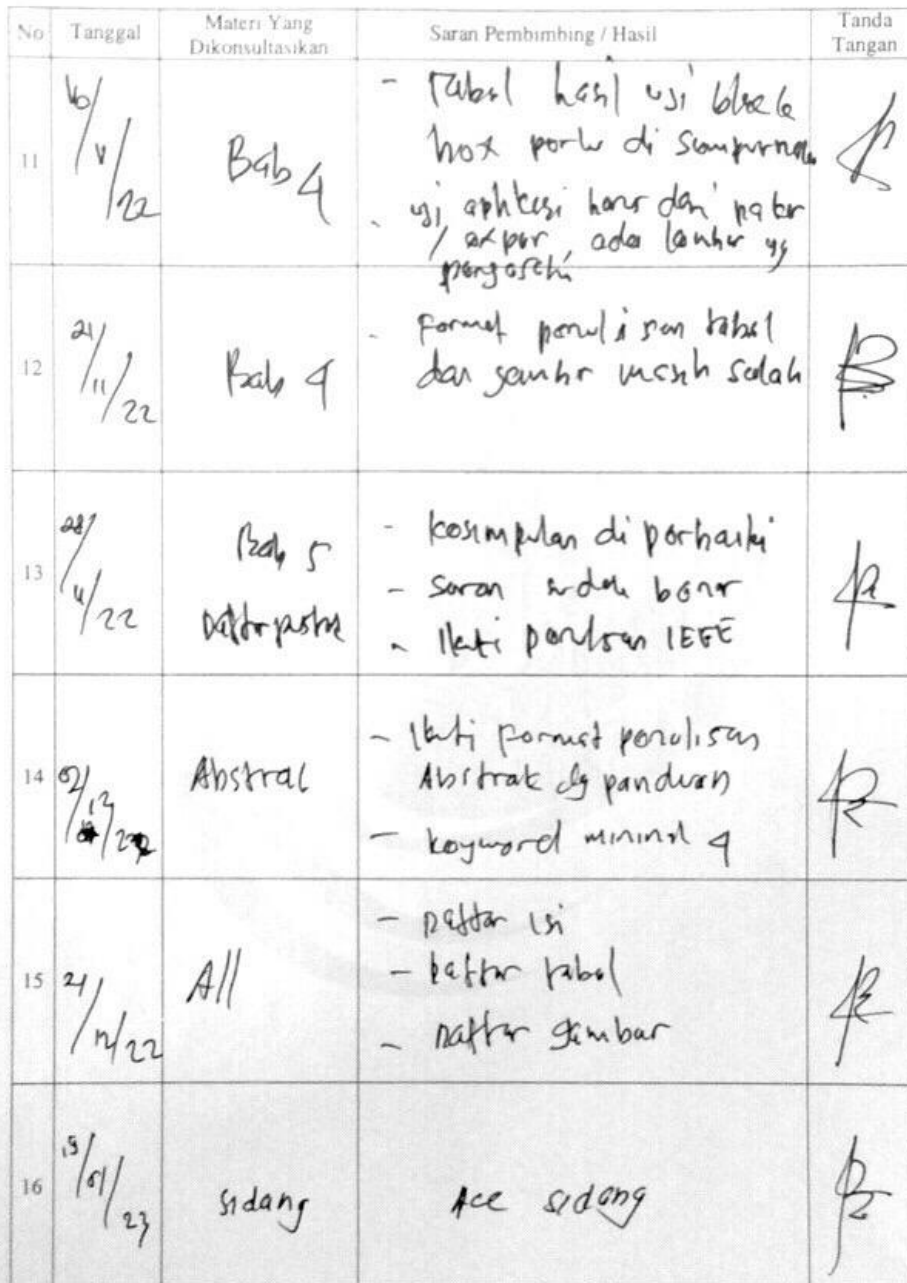 No Tanggal Materi Yang Dikonsultasikan Saran Pembimbing / Hasil Tanda Tangan
11
Bab 4
- Tabel hasil uji black
box perlu di sempurnakan
- uji aplikasi harus dari pakar
/ expert, ada lembar yg
12 21/11/22 Bab 4
- Format penulisan tabel
dan gambar masih salah
13 28/11/22 Bab 5
Daftar pustaka
- kesimpulan di perbaiki
- saran sudah benar
- Ikuti penulisan IEEE
14 02/12/22 Abstrak
- Ikuti format penulisan
Abstrak dg panduan
- keyword minimal 4
15 21/12/22 All
- Daftar isi
- Daftar tabel
- Daftar gambar
16 /01/23 sidang
Acc sidang